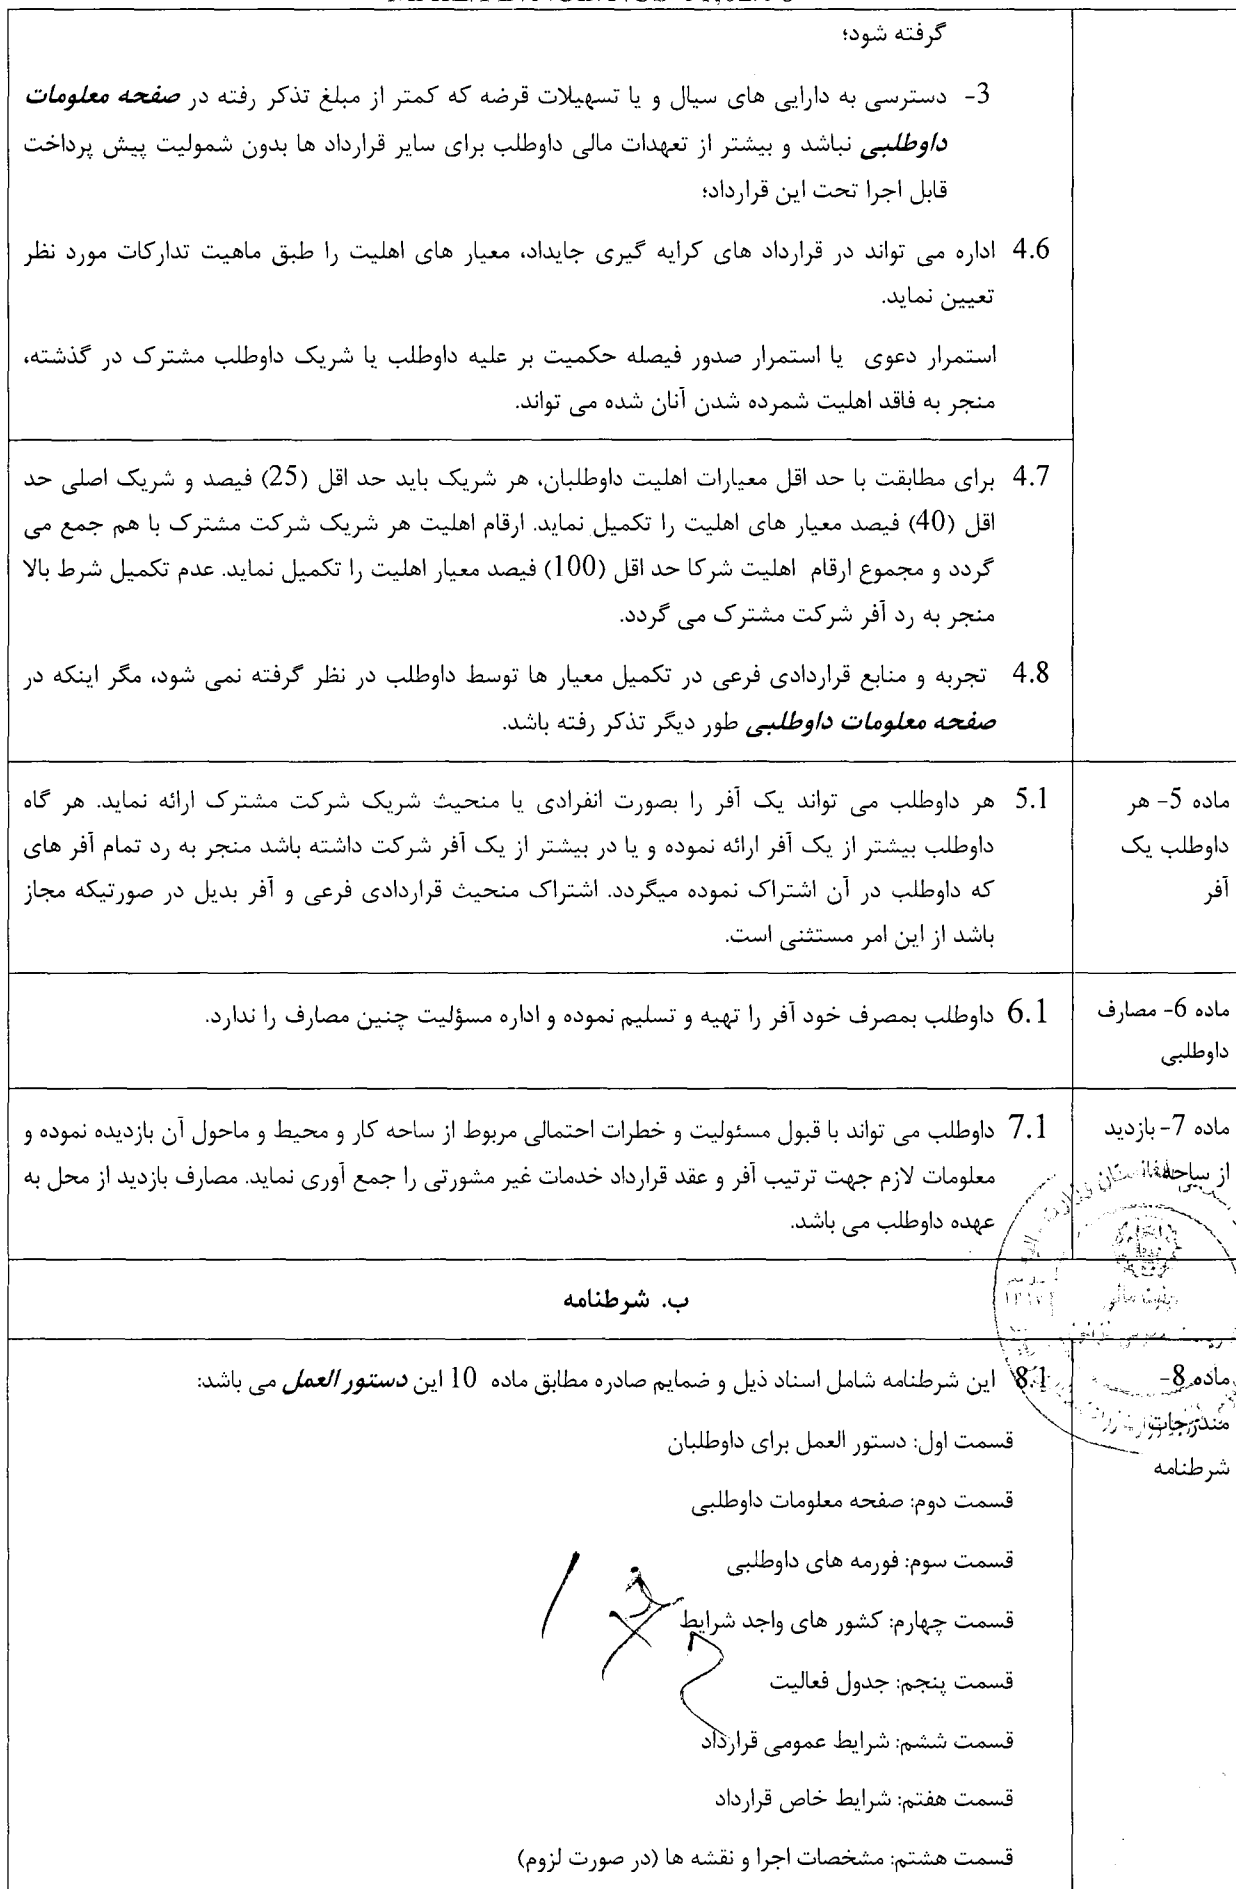 گرفته شود؛
3- دسترسی به دارایی های سیال و یا تسهیلات قرضه که کمتر از مبلغ تذکر رفته در صفحه معلومات
داوطلبی نباشد و بیشتر از تعهدات مالی داوطلب برای سایر قرارداد ها بدون شمولیت پیش پرداخت
قابل اجرا تحت این قرارداد؛
4.6 اداره می تواند در قرارداد های کرایه گیری جایداد، معیار های اهلیت را طبق ماهیت تدارکات مورد نظر
تعیین نماید.
استمرار دعوی یا استمرار صدور فیصله حکمیت بر علیه داوطلب یا شریک داوطلب مشترک در گذشته،
منجر به فاقد اهلیت شمرده شدن آنان شده می تواند.
4.7 برای مطابقت با حد اقل معیارات اهلیت داوطلبان، هر شریک باید حد اقل (25) فیصد و شریک اصلی حد
اقل (40) فیصد معیار های اهلیت را تکمیل نماید. ارقام اهلیت هر شریک شرکت مشترک با هم جمع می
گردد و مجموع ارقام اهلیت شرکا حد اقل (100) فیصد معیار اهلیت را تکمیل نماید. عدم تکمیل شرط بالا
منجر به رد آفر شرکت مشترک می گردد.
4.8 تجربه و منابع قراردادی فرعی در تکمیل معیار ها توسط داوطلب در نظر گرفته نمی شود، مگر اینکه در
صفحه معلومات داوطلبی طور دیگر تذکر رفته باشد.
ماده 5- هر
داوطلب یک
آفر
5.1 هر داوطلب می تواند یک آفر را بصورت انفرادی یا منحیث شریک شرکت مشترک ارائه نماید. هر گاه
داوطلب بیشتر از یک آفر ارائه نموده و یا در بیشتر از یک آفر شرکت داشته باشد منجر به رد تمام آفر های
که داوطلب در آن اشتراک نموده میگردد. اشتراک منحیث قراردادی فرعی و آفر بدیل در صورتیکه مجاز
باشد از این امر مستثنی است.
ماده 6- مصارف
داوطلبی
6.1 داوطلب بمصرف خود آفر را تهیه و تسلیم نموده و اداره مسؤلیت چنین مصارف را ندارد.
ماده 7- بازدید
از ساحه
7.1 داوطلب می تواند با قبول مسئولیت و خطرات احتمالی مربوط از ساحه کار و محیط و ماحول آن بازدیده نموده و
معلومات لازم جهت ترتیب آفر و عقد قرارداد خدمات غیر مشورتی را جمع آوری نماید. مصارف بازدید از محل به
عهده داوطلب می باشد.
ب. شرطنامه
ماده 8-
مندرجات
شرطنامه
8.1 این شرطنامه شامل اسناد ذیل و ضمایم صادره مطابق ماده 10 این دستور العمل می باشد:
قسمت اول: دستور العمل برای داوطلبان
قسمت دوم: صفحه معلومات داوطلبی
قسمت سوم: فورمه های داوطلبی
قسمت چهارم: کشور های واجد شرایط
قسمت پنجم: جدول فعالیت
قسمت ششم: شرایط عمومی قرارداد
قسمت هفتم: شرایط خاص قرارداد
قسمت هشتم: مشخصات اجرا و نقشه ها (در صورت لزوم)